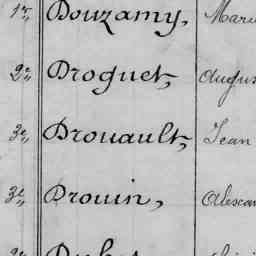 1re Douzamy, Marie
2e Droguet, Augus
3e Drouault, Jean
3e Drouin, Alexan
2e